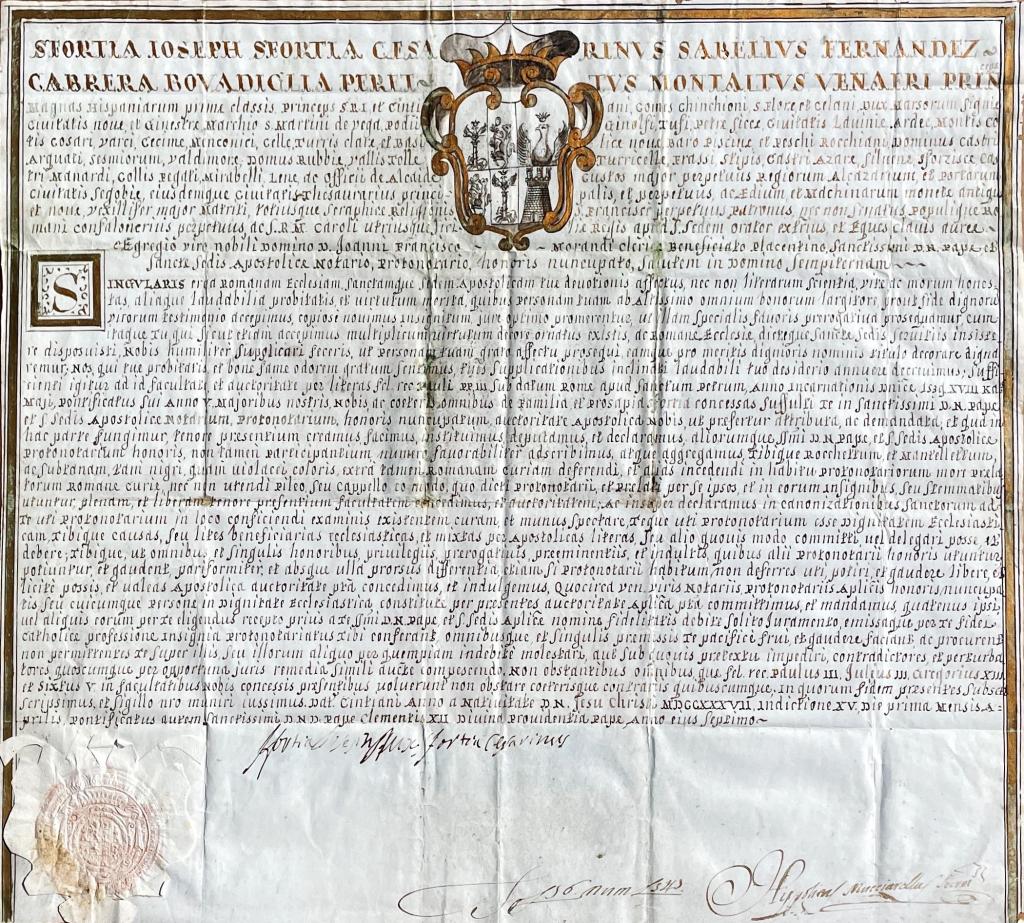 SFORTIA IOSEPH SFORTIA CESA RINVS SABELLVS FERNANDEZ
CABRERA BOVADIGLIA PERET TVS MONTALTVS VENAFRI PRIN ceps
Magnas Hispaniarum prime classis Princeps S.R.I. et Cinti ani, Comes Chinchionis Flore, et Celani, Dux Marsorum, Signie
Civitatis nove, et Ginestre, Marchio S. Martini de vega, Podii Ginolfi, Tufi, Petre sicce Civitatis Lavinie, Ardee, Montis co
tis Cosari, varci, Cecime, Minconici, Celle, Turris elate, et Basi lice nove, Baro Piscine, et Peschi Rocchiani, Dominus Castri
Arquati, sesmiorum, valdimore, Domus Rubbie, vallis Telle Turricelle, Frassi, stipis, Castri Azare, silvene, sforzisce, cas
tri Manardi, Collis Regali, Mirabelli, Lene, ac officii de Alcadia Custos major, perpetuus Regiorum Alcazarium, et Portarum
Civitatis segobie, ejusdemque Civitatis Thesaurarius prince palis, et perpetuus, ac Edium, et Machinarum monete antique
et nove, vexillifer major Matriti, totiusque seraphice Religionis S. Francisci perpetuus Patronus, nec non senatus Populique Ro
mani confalonerius perpetuus, ac S.R.M. Caroli utriusque Sicilie Regis apud S. Sedem orator extrius, et Eques clavis auree
Egregio viro nobili Domino D. Joanni Francisco Morandi clerico Beneficiato Placentino, Sanctissimi D.N. Pape, et
Sancte Sedis Apostolice Notario, Protonotario, honoris nuncupato, salutem in Domino sempiternam
SINGVLARIS erga Romanam Ecclesiam, sanctamque Sedem Apostolicam tue devotionis affectus, nec non literarum scientia, vite, ac morum hones
tas, aliaque laudabilia probitatis, et virtutum merita, quibus personam tuam ab Altissimo omnium bonorum largitore, prout fide dignorum
virorum testimonio accepimus, copiose novimus insignitum, jure optimo promerentur, ut te etiam specialis favoris prerogativa prosequamur, cum
itaque Tu qui, sicut etiam accepimus, multiplici virtutum decore ornatus existis, ac Romane Ecclesie, dicteque sancte sedis servitiis insiste
re disposuisti, Nobis humiliter supplicari feceris, ut personam tuam grato affectu prosequi, eamque pro meritis dignioris nominis titulo decorare digna
remur, Nos, qui tue probitatis, et bone fame odorem gratum sentimus, tuis supplicationibus inclinati, laudabili tuo desiderio annuere decrevimus; suffi
cienti igitur ad id facultate, et auctoritate per literas fel. rec. Pauli PP. III sub datum Rome apud sanctum Petrum, Anno Incarnationis Dnice 1539 XVIII Kal
Maji, Pontificatus sui Anno V, Majoribus nostris, Nobis, ac coeteris omnibus de Familia, et Prosapia sfortia concessas suffulti, te in sanctissimi D.N. Pape,
et S. sedis Apostolice Notarium, Protonotarium, honoris nuncupatum, auctoritate Apostolica Nobis, ut prefertur, attributa, ac demandata, et qua in
hac parte fungimur, tenore presentium creamus, facimus, instituimus, deputamus, et declaramus, aliorumque ssmi D.N. Pape, et S. sedis Apostolice
Protonotariorum honoris, non tamen participantium, numero favorabiliter adscribimus, atque aggregamus, Tibique Rocchettum, et Mantellettum,
ac subtanam, tam nigri, quam violacei coloris, extra tamen Romanam Curiam deferendi, et alias incedendi in habitu Protonotariorum more Prela
torum Romane curie, nec non utendi Pileo, seu cappello eo modo, quo dicti Protonotarii, et Prelati per se ipsos, et in eorum insignibus, seu stemmatibus
utuntur, plenam, et liberam tenore presentium facultatem facimus, et auctoritatem; Ac insuper declaramus in canonizationibus sanctorum ad
Te uti Protonotarium in loco conficiendi examinis existentem curam, et munus spectare, Teque uti Protonotarium esse Dignitatem Ecclesiasti
cam, Tibique causas, seu lites beneficiarias, ecclesiasticas, et mixtas per Apostolicas literas, seu alio quovis modo committi, vel delegari posse, et
debere; Tibique, ut omnibus, et singulis honoribus, privilegiis, prerogativis, preeminentiis, et indultis, quibus alii Protonotarii honoris utuntur,
potiuntur, et gaudent, pariformiter, et absque ulla prorsus differentia, etiam si Protonotarii habitum non deferres, uti, potiri, et gaudere libere, et
licite possis, et valeas Apostolica auctoritate pta concedimus, et indulgemus, Quocirca ven. viris Notariis, Protonotariis Aplicis honoris nuncupa
tis, seu cuicumque Persone in Dignitate Ecclesiastica constitute per presentes auctoritate Aplica pta committimus, et mandamus, quatenus ipsi,
vel aliquis eorum per te eligendus, recepto prius a te ssmi D.N. Pape, et S. sedis Aplice nomine fidelitatis debite solito Juramento, emissaque per te fidei
catholice professione, Insignia Protonotariatus tibi conferant, omnibusque, et singulis premissis te pacifice frui, et gaudere, faciant, ac procurent
non permittentes te super illis, seu illorum aliquo per quempiam indebite molestari, aut sub quovis pretextu impediri, contradictores, et perturba
tores quoscumque per opportuna juris remedia simili aucte compescendo. Non obstantibus omnibus, que fel. rec. Paulus III, Julius III, Gregorius XIII,
et Sixtus V. in facultatibus Nobis concessis prsentibus voluerunt non obstare, coeterisque contrariis quibuscumque, in quorum fidem presentes subscri
scripsimus, et sigillo nro muniri jussimus. Dat. Cintiani Anno a Nativitate D.N. Jesu Christi MDCCXXXVII, Indictione XV, Die prima Mensis A-
prilis, Pontificatus autem sanctissimi D.N.D. Pape Clementis XII Divina Providentia Pape, Anno ejus septimo
sfortia sfortia Cesarinus